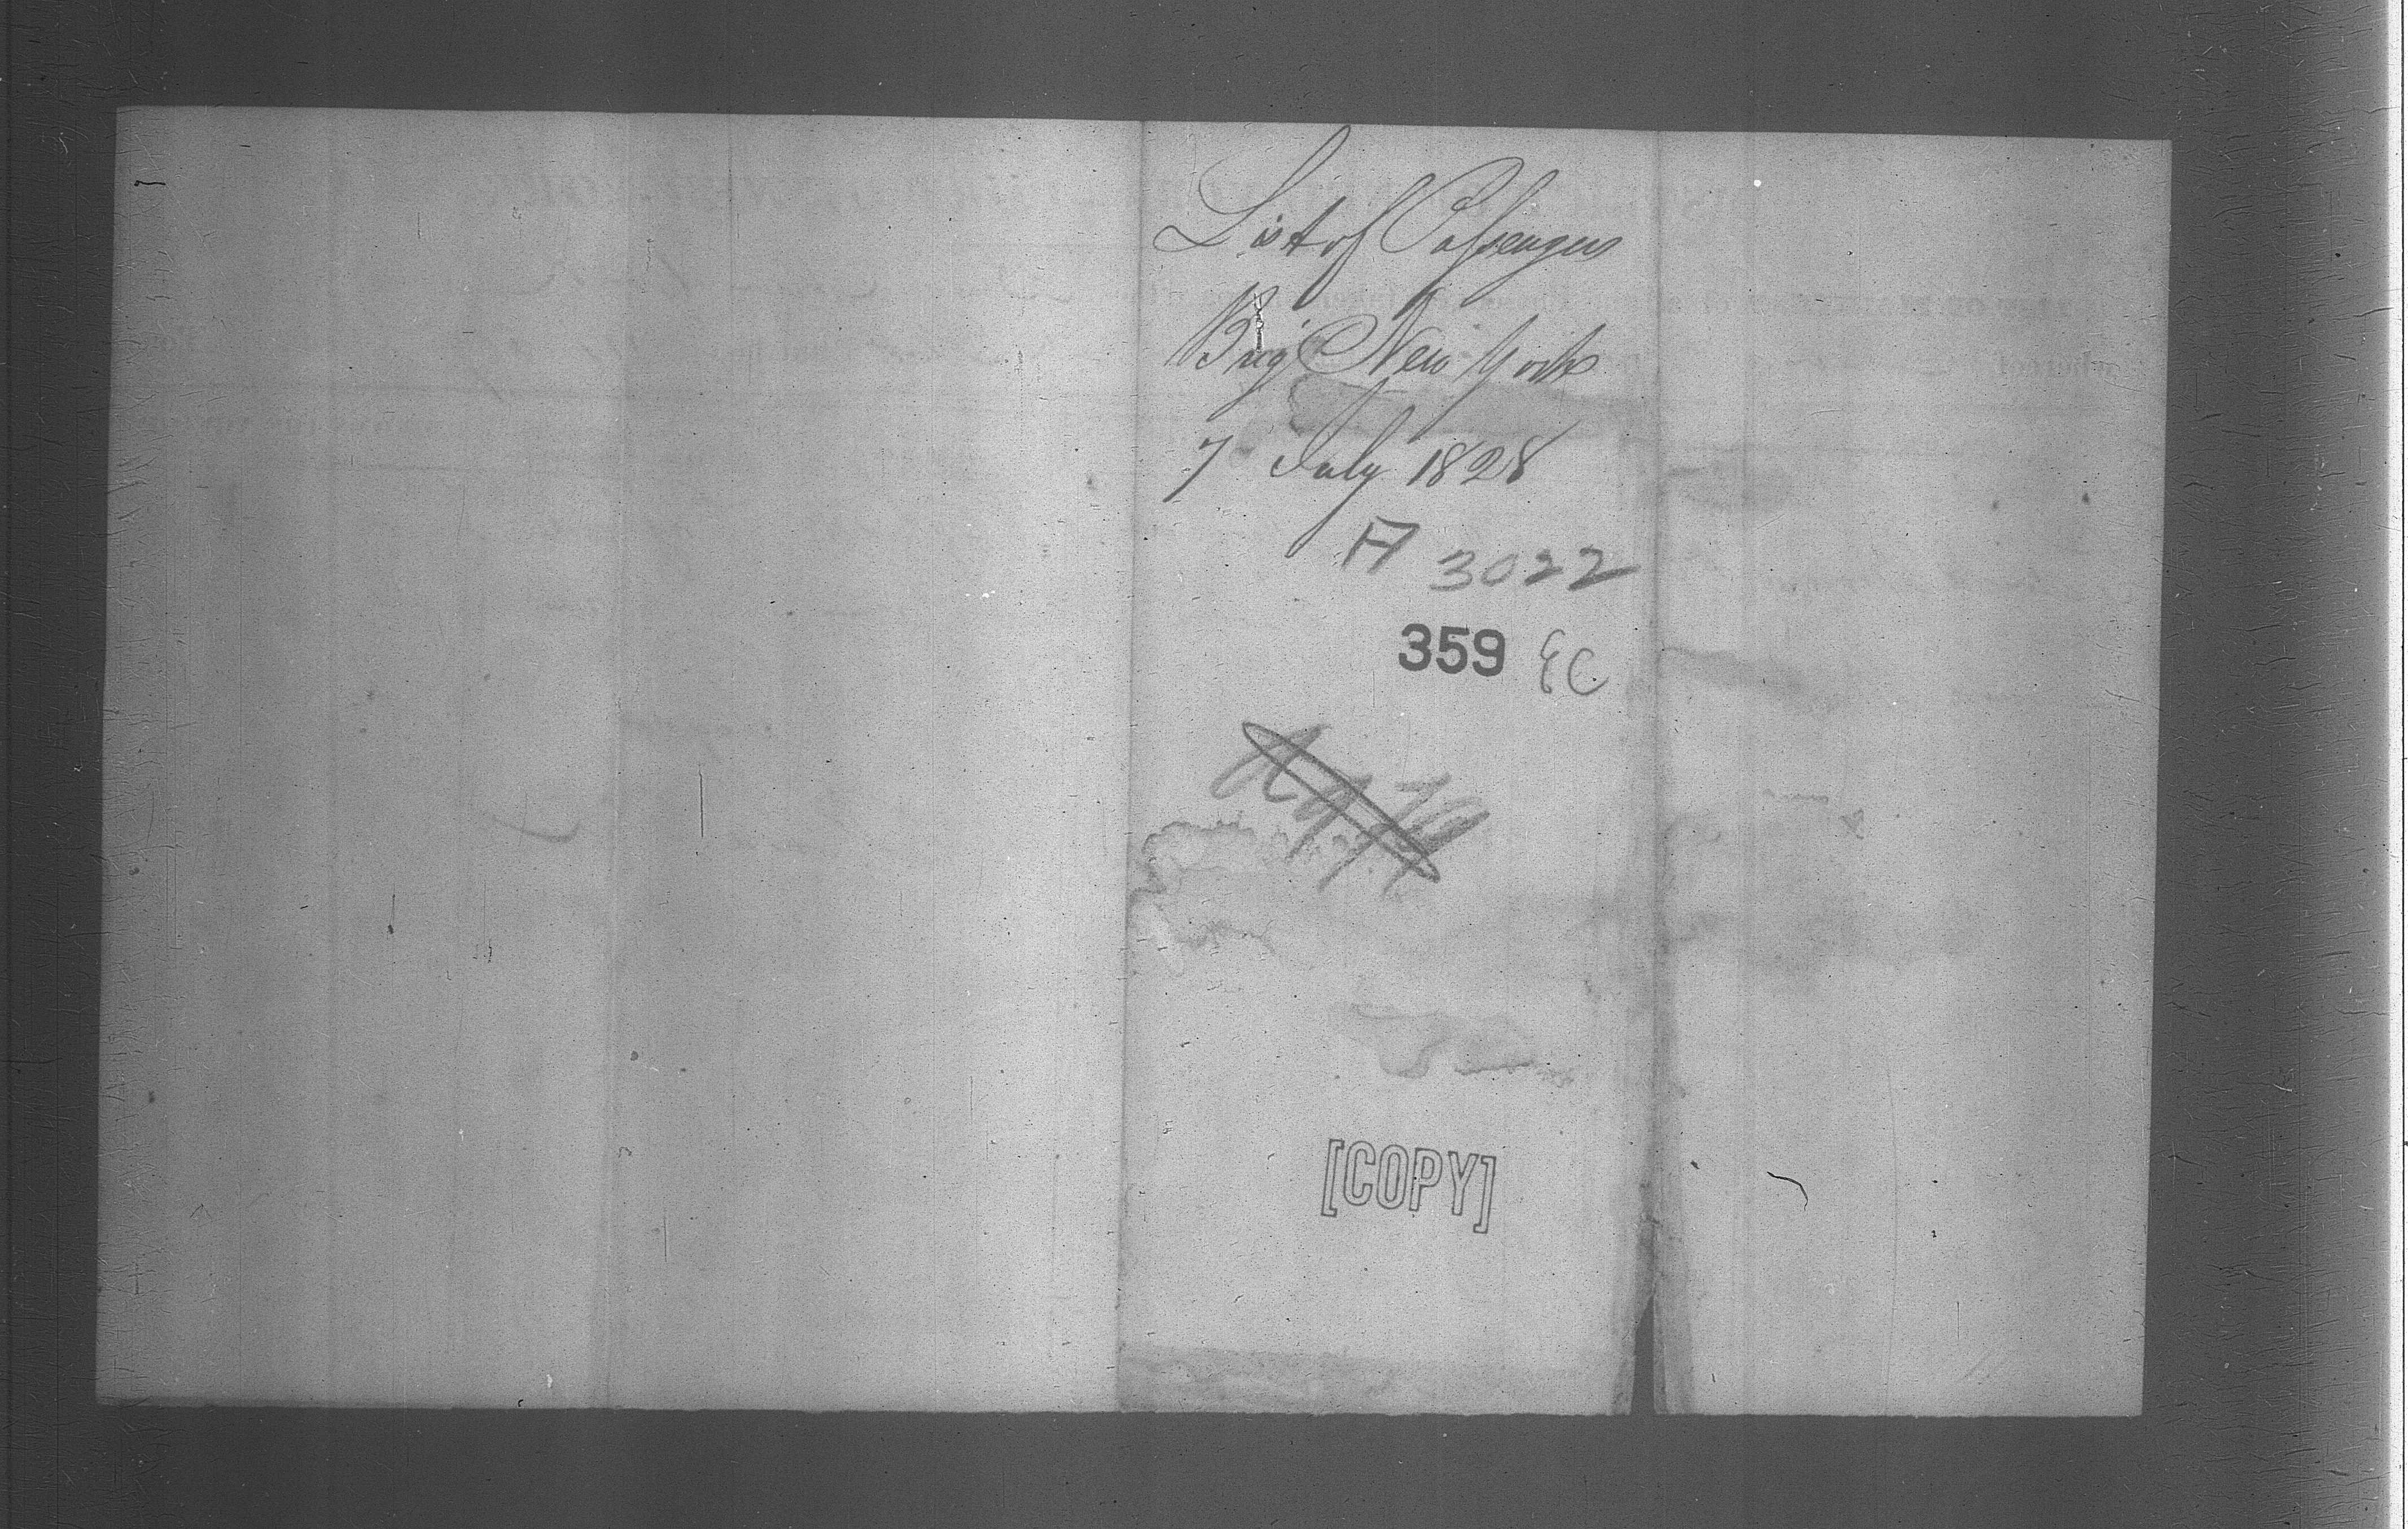 List of Passengers
Brig New York
7 July 1828
A 3022
359 EC
[COPY]